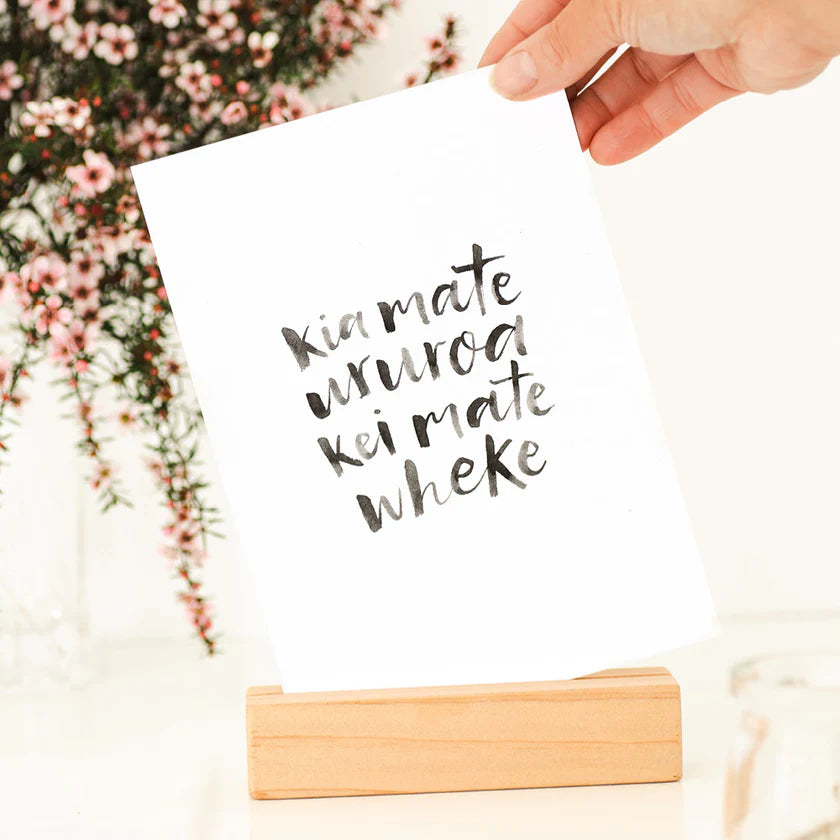 kia mate
ururoa
kei mate
wheke